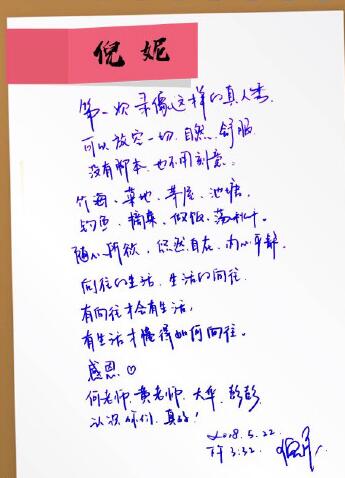 倪妮
第一次录像这样的真人秀
可以放空一切.自然.舒服
没有脚本.也不用刻意.
竹海、菜地、茅屋、池塘.
钓鱼、摘菜、做饭、荡秋千.
随心所欲.悠然自在.内心平静.
向往的生活.生活的向往
有向往才会有生活,
有生活才懂得如何向往。
感恩.♡
何老师.黄老师.大华.彭彭
认识你们.真好!
2018.5.22.
下午3:32.